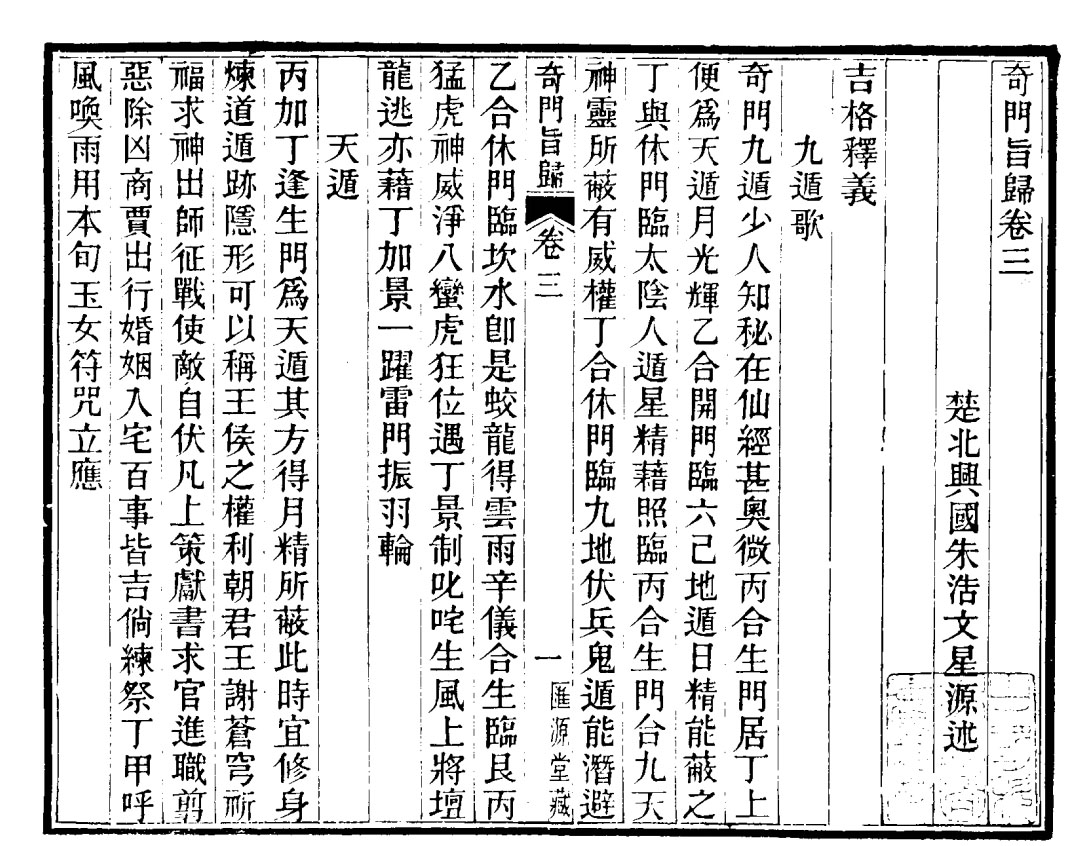 奇門旨歸卷三
楚北興國朱浩文星源述
吉格釋義
九遁歌
奇門九遁少人知秘在仙經甚奧微丙合生門居丁上
便爲天遁月光輝乙合開門臨六己地遁日精能蔽之
丁與休門臨太陰人遁星精藉照臨丙合生門合九天
神靈所蔽有威權丁合休門臨九地伏兵鬼遁能潛避
奇門旨歸 卷三 一 匯源堂藏
乙合休門臨坎水卽是蛟龍得雲雨辛儀合生臨艮丙
猛虎神威淨八蠻虎狂位遇丁景制叱咤生風上將壇
龍逃亦藉丁加景一躍雷門振羽輪
天遁
丙加丁逢生門爲天遁其方得月精所蔽此時宜修身
煉道遁跡隱形可以稱王侯之權利朝君王謝蒼穹祈
福求神出師征戰使敵自伏凡上策獻書求官進職剪
惡除凶商賈出行婚姻入宅百事皆吉倘練祭丁甲呼
風喚雨用本旬玉女符咒立應